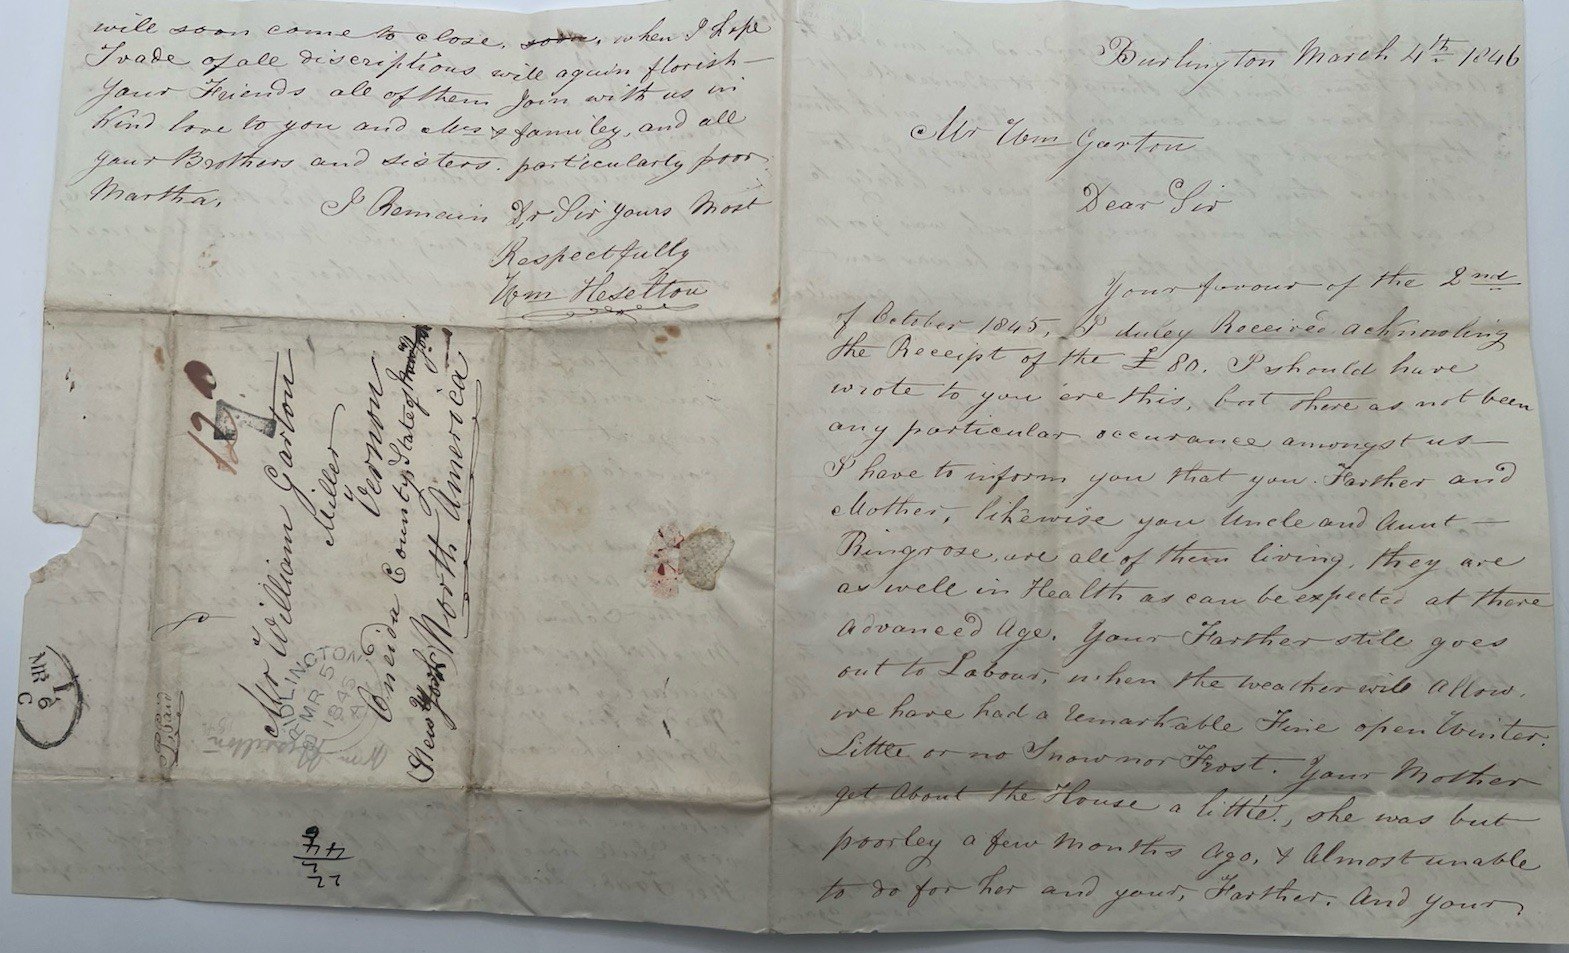 Burlington March 4th 1846
Mr Wm Garton
Dear Sir
Your favour of the 2nd
of October 1845, I duley Received acknowling
the Receipt of the £ 80. I should have
wrote to you ere this, but there as not been
any particular occurance amongst us
I have to inform you that you Farther and
Mother, likewise you Uncle and Aunt
Ringrose, are all of them living, they are
as well in Health as can be expected at there
advanced Age. Your Farther still goes
out to Labour, when the weather will allow.
we have had a remarkable Fine open Winter.
Little or no Snow nor Frost. Your Mother
get About the House a little, she was but
poorley a few months ago, & Almost unable
to do for her and your, Farther. And your
will soon come to close, soon, when I hope
Trade of all discriptions will again florish
Your Friends all of them Join with us in
kind love to you and Mrs & familey, and all
your Brothers and sisters. particularly poor
Martha.
I Remain Dr Sir yours Most
Respectfully
Wm Heselton
12
Mr William Garton
Miller
Vernon
Oneida County, States of
New York North America
Paid
BRIDLINGTON
MR 5
1846
1
MR 6
C